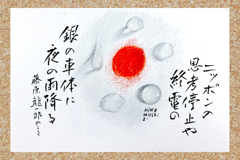 ニッポンの
思考停止や
終電の
銀の車体に
夜の雨降る
藤原龍一郎のうた